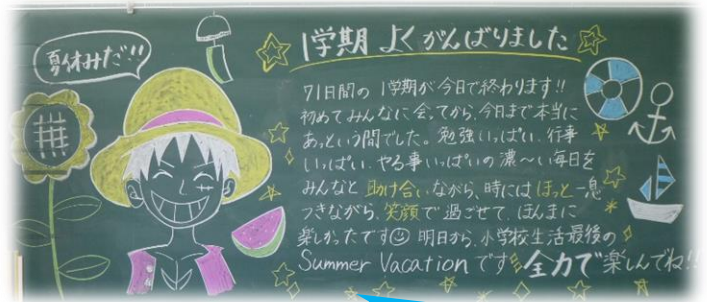 夏休みだ!!
1学期 よくがんばりました
71日間の1学期が今日で終わります!!
初めてみんなに会ってから、今日まで本当に
あっという間でした。勉強いっぱい、行事
いっぱい、やる事いっぱいの濃〜い毎日を
みんなと助け合いながら、時にはほっと一息
つきながら、笑顔で過ごせて、ほんまに
楽しかったです☺ 明日から、小学校生活最後の
Summer Vacationです 全力で楽しんでね!!